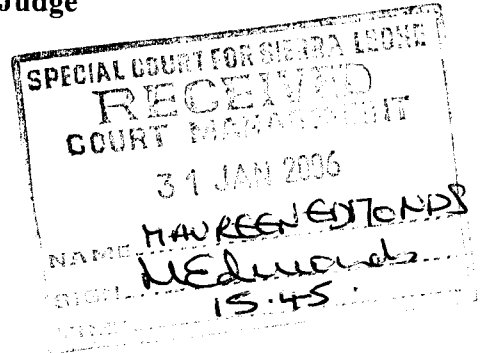 Judge
SPECIAL COURT FOR SIERRA LEONE
RECEIVED
COURT MANAGEMENT
31 JAN 2006
NAME MAUREEN EDMONDS
SIGN MEdmonds
TIME 15.45.